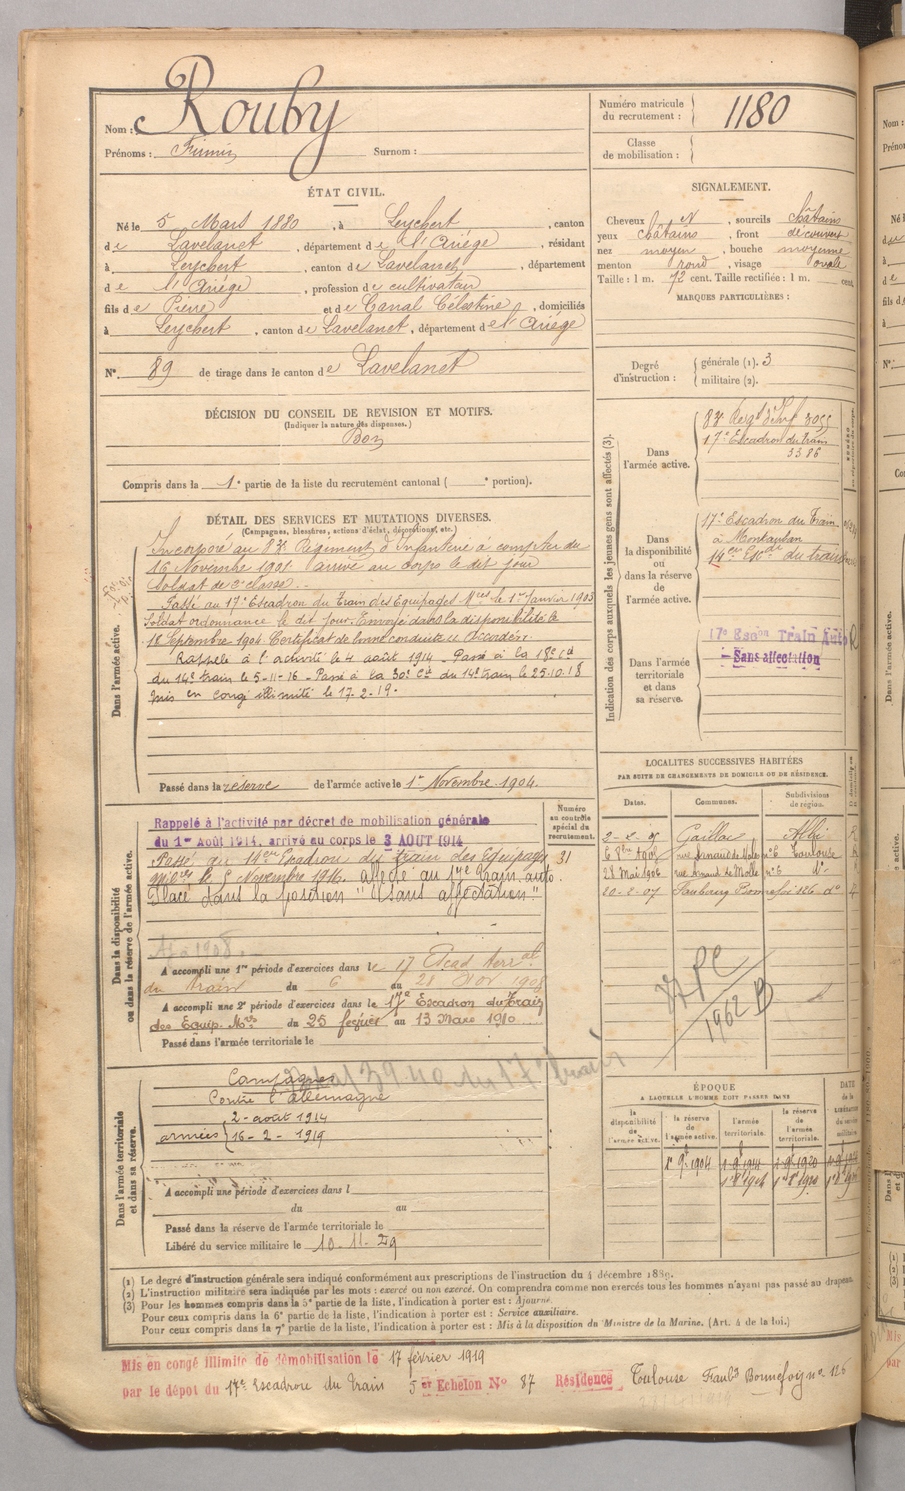 Nom : Rouby
Prénoms : Firmin Surnom :
Numéro matricule du recrutement : 1180
Classe de mobilisation :
ÉTAT CIVIL.
Né le 5 Mars 1880, à Leychert, canton
de Lavelanet, département de l'Ariège, résidant
à Leychert, canton de Lavelanet, département
de l'Ariège, profession de cultivateur
fils de Pierre et de Canal Célestine, domiciliés
à Leychert, canton de Lavelanet, département de l'Ariège
N° 89 de tirage dans le canton de Lavelanet
SIGNALEMENT.
Cheveux N, sourcils châtains
yeux châtains, front découvert
nez moyen, bouche moyenne
menton rond, visage ovale
Taille : 1 m. 72 cent. Taille rectifiée : 1 m. cent.
MARQUES PARTICULIÈRES :
Degré d'instruction : générale (1). 3
militaire (2).
DÉCISION DU CONSEIL DE REVISION ET MOTIFS.
(Indiquer la nature des dispenses.)
Bon
Compris dans la 1e partie de la liste du recrutement cantonal ( e portion).
DÉTAIL DES SERVICES ET MUTATIONS DIVERSES.
(Campagnes, blessures, actions d'éclat, décorations, etc.)
Dans l'armée active.
Incorporé au 83e Régiment d'Infanterie à compter du
16 Novembre 1901 arrivé au corps le dit jour
Soldat de 2e classe.
Passé au 17e Escadron du Train des Equipages Mres le 1er Janvier 1903
Soldat ordonnance le dit jour. Envoyé dans la disponibilité le
18 Septembre 1904. Certificat de bonne conduite Accordé.
Rappelé à l'activité le 4 août 1914 - Passé à la 18e Cie
du 14e train le 5-11-16 - Passé à la 30e Cie du 14e train le 25.10.18
mis en congé illimité le 17.2.19.
Passé dans la réserve de l'armée active le 1er Novembre 1904.
Indication des corps auxquels les jeunes gens sont affectés (3).
Dans l'armée active.
83e Regt d'Inf 3055
17e Escadron du train
3386
Dans la disponibilité ou dans la réserve de l'armée active.
17e Escadron du Train
à Montauban
14e Escon du train
Dans l'armée territoriale et dans sa réserve.
17e Escon Train Auto
Sans affectation
Dans la disponibilité ou dans la réserve de l'armée active.
Numéro au contrôle spécial du recrutement.
31
Rappelé à l'activité par décret de mobilisation générale
du 1er Août 1914, arrivé au corps le 3 AOUT 1914
Passé au 14eme Escadron du train des Equipages
milres le 5 Novembre 1916. affecté au 17e train auto.
Placé dans la position "Sans affectation"
A accompli une 1re période d'exercices dans le 17 Escad terral
du train du 6 au 21 Nov 1908
A accompli une 2e période d'exercices dans le 17e Escadron du Train
des Equip. Mres du 25 février au 13 Mars 1910
Passé dans l'armée territoriale le
LOCALITES SUCCESSIVES HABITÉES
PAR SUITE DE CHANGEMENTS DE DOMICILE OU DE RÉSIDENCE.
Dates. Communes. Subdivisions de région.
2-2-05 Gaillac Albi
6 8bre 1905 rue Arnaud de Mole n° 6 Toulouse
28 Mai 1906 rue Arnaud de Molle n° 6 do
20-2-07 Faubourg Bonnefoi 126 do
1962
Dans l'armée territoriale et dans sa réserve.
Campagnes
Contre l'allemagne
armées 2-août 1914
16-2-1919
A accompli une période d'exercices dans l
du au
Passé dans la réserve de l'armée territoriale le
Libéré du service militaire le 10-11-29
ÉPOQUE
A LAQUELLE L'HOMME DOIT PASSER DANS
la disponibilité de l'armée active. la réserve de l'armée active. l'armée territoriale. la réserve de l'armée territoriale. DATE de la LIBÉRATION du service militaire.
(1) Le degré d'instruction générale sera indiqué conformément aux prescriptions de l'instruction du 4 décembre 1889.
(2) L'instruction militaire sera indiquée par les mots : exercé ou non exercé. On comprendra comme non exercés tous les hommes n'ayant pas passé au drapeau.
(3) Pour les hommes compris dans la 5e partie de la liste, l'indication à porter est : Ajourné.
Pour ceux compris dans la 6e partie de la liste, l'indication à porter est : Service auxiliaire.
Pour ceux compris dans la 7e partie de la liste, l'indication à porter est : Mis à la disposition du Ministre de la Marine. (Art. 4 de la loi.)
Mis en congé illimité de démobilisation le 17 février 1919
par le dépôt du 17e Escadron du Train 5 er Echelon N° 87 Résidence Toulouse Faubg Bonnefoy n° 126